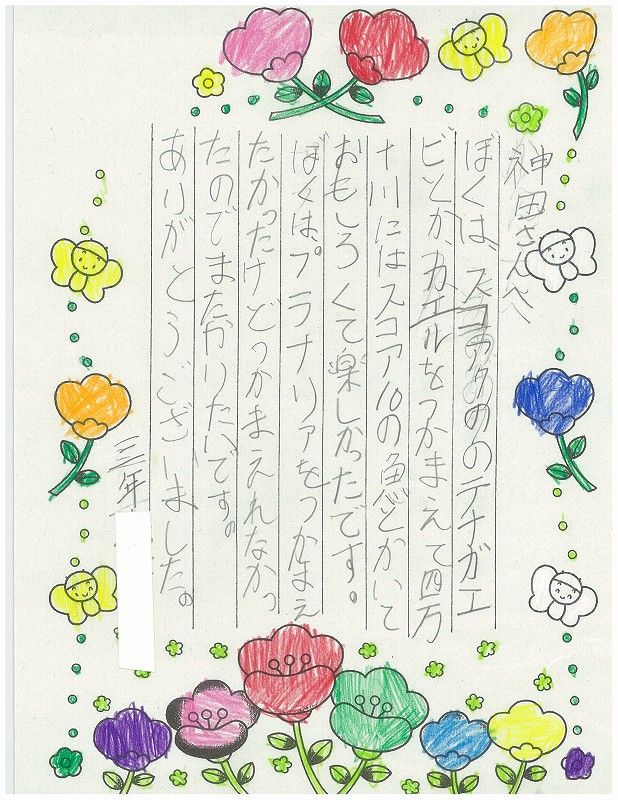 神田さんへ
ぼくは、スコアめめのテナガエ
ビとか、カエルをつかまえて四万
十川にはスコア10の魚とかいて
おもしろくて楽しかったです。
ぼくは、プラナリアをつかまえ
たかったけどつかまえれなかっ
たのでまたかりたいです。
ありがとうございました。
三年